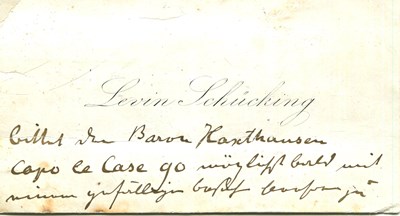 Levin Schücking
bittet den Baron Haxthausen
Capo le Case 90 möglichst bald mit
einem gefälligen Besuch beehren zu